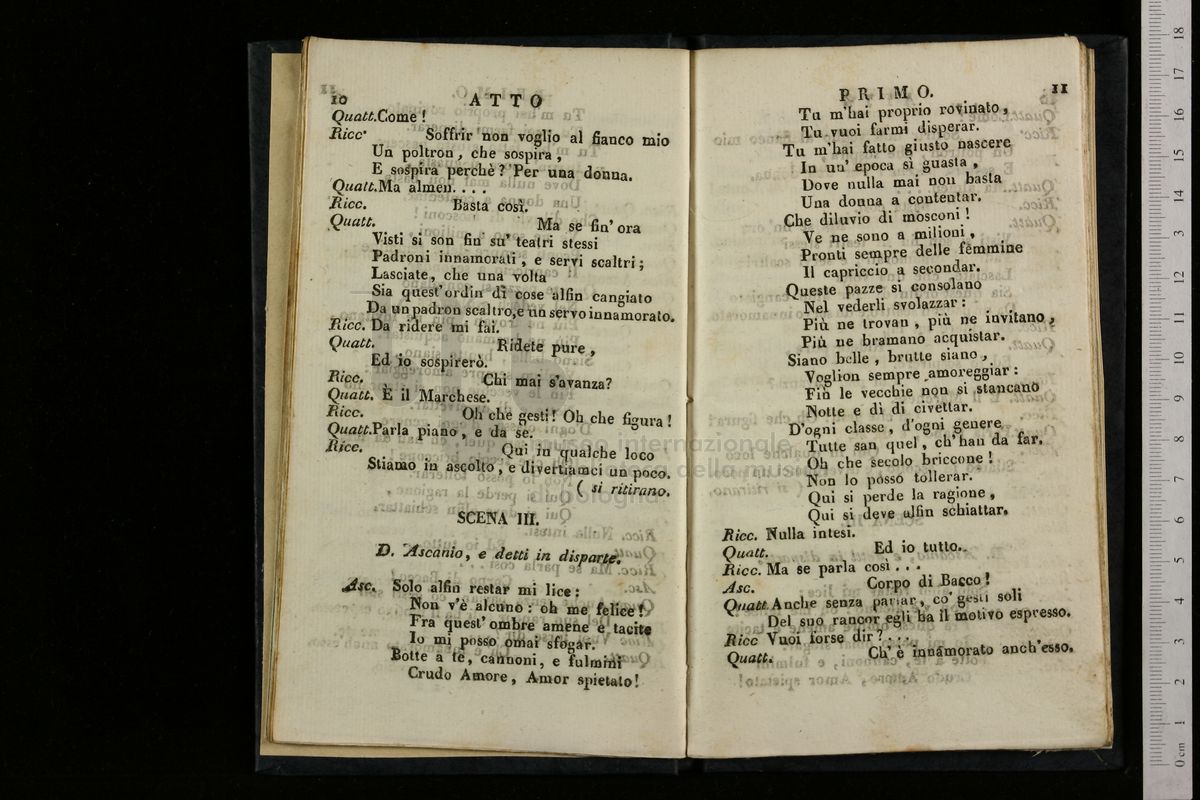 10 ATTO
Quatt. Come !
Ricc. Soffrir non voglio al fianco mio
Un poltron, che sospira,
E sospira perchè? Per una donna.
Quatt. Ma almen. . . .
Ricc. Basta così.
Quatt. Ma se fin' ora
Visti si son fin su' teatri stessi
Padroni innamorati, e servi scaltri;
Lasciate, che una volta
Sia quest' ordin di cose alfin cangiato
Da un padron scaltro, e un servo innamorato.
Ricc. Da ridere mi fai.
Quatt. Ridete pure,
Ed io sospirerò.
Ricc. Chi mai s'avanza?
Quatt. È il Marchese.
Ricc. Oh che gesti! Oh che figura!
Quatt. Parla piano, e da se.
Ricc. Qui in qualche loco
Stiamo in ascolto, e divertiamci un poco.
( si ritirano.
SCENA III.
D. Ascanio, e detti in disparte.
Asc. Solo alfin restar mi lice:
Non v'è alcuno: oh me felice!
Fra quest' ombre amene e tacite
Io mi posso omai sfogar.
Botte a te, cannoni, e fulmini
Crudo Amore, Amor spietato!
PRIMO. 11
Tu m'hai proprio rovinato,
Tu vuoi farmi disperar.
Tu m'hai fatto giusto nascere
In un' epoca sì guasta,
Dove nulla mai non basta
Una donna a contentar.
Che diluvio di mosconi!
Ve ne sono a milioni,
Pronti sempre delle femmine
Il capriccio a secondar.
Queste pazze si consolano
Nel vederli svolazzar:
Più ne trovan, più ne invitano,
Più ne bramano acquistar.
Siano belle, brutte siano,
Voglion sempre amoreggiar:
Fin le vecchie non si stancano
Notte e dì di civettar.
D'ogni classe, d'ogni genere
Tutte san quel, ch'han da far.
Oh che secolo briccone!
Non lo posso tollerar.
Qui si perde la ragione,
Qui si deve alfin schiattar.
Ricc. Nulla intesi.
Quatt. Ed io tutto.
Ricc. Ma se parla così . . .
Asc. Corpo di Bacco!
Quatt. Anche senza parlar, co' gesti soli
Del suo rancor egli ha il motivo espresso.
Ricc Vuoi forse dir? . . .
Quatt. Ch' è innamorato anch'esso.
museo internazionale
e biblioteca della musica
di bologna
0 cm 1 2 3 4 5 6 7 8 9 10 11 12 13 14 15 16 17 18